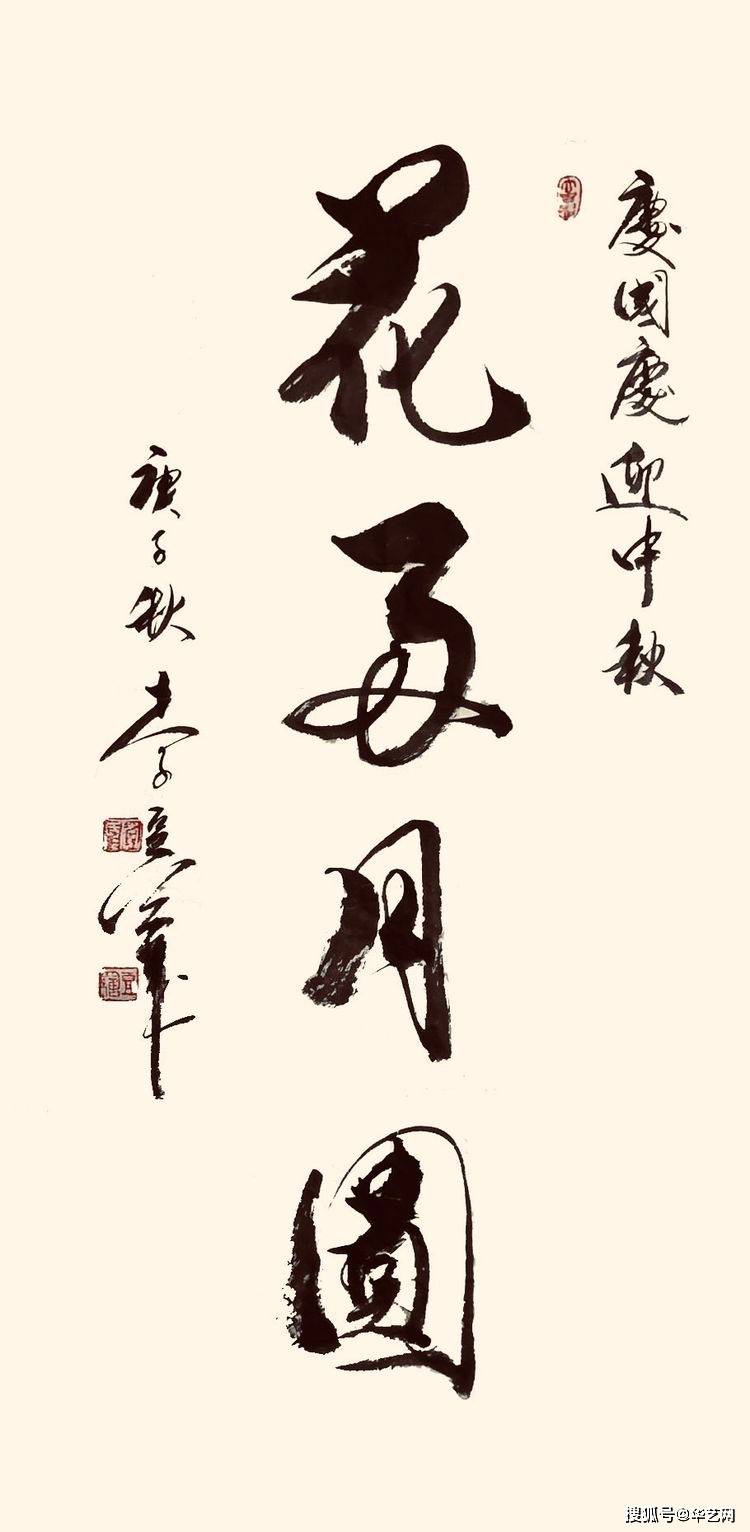 慶國慶迎中秋
花好月圓
庚子秋李宜
搜狐号@华艺网